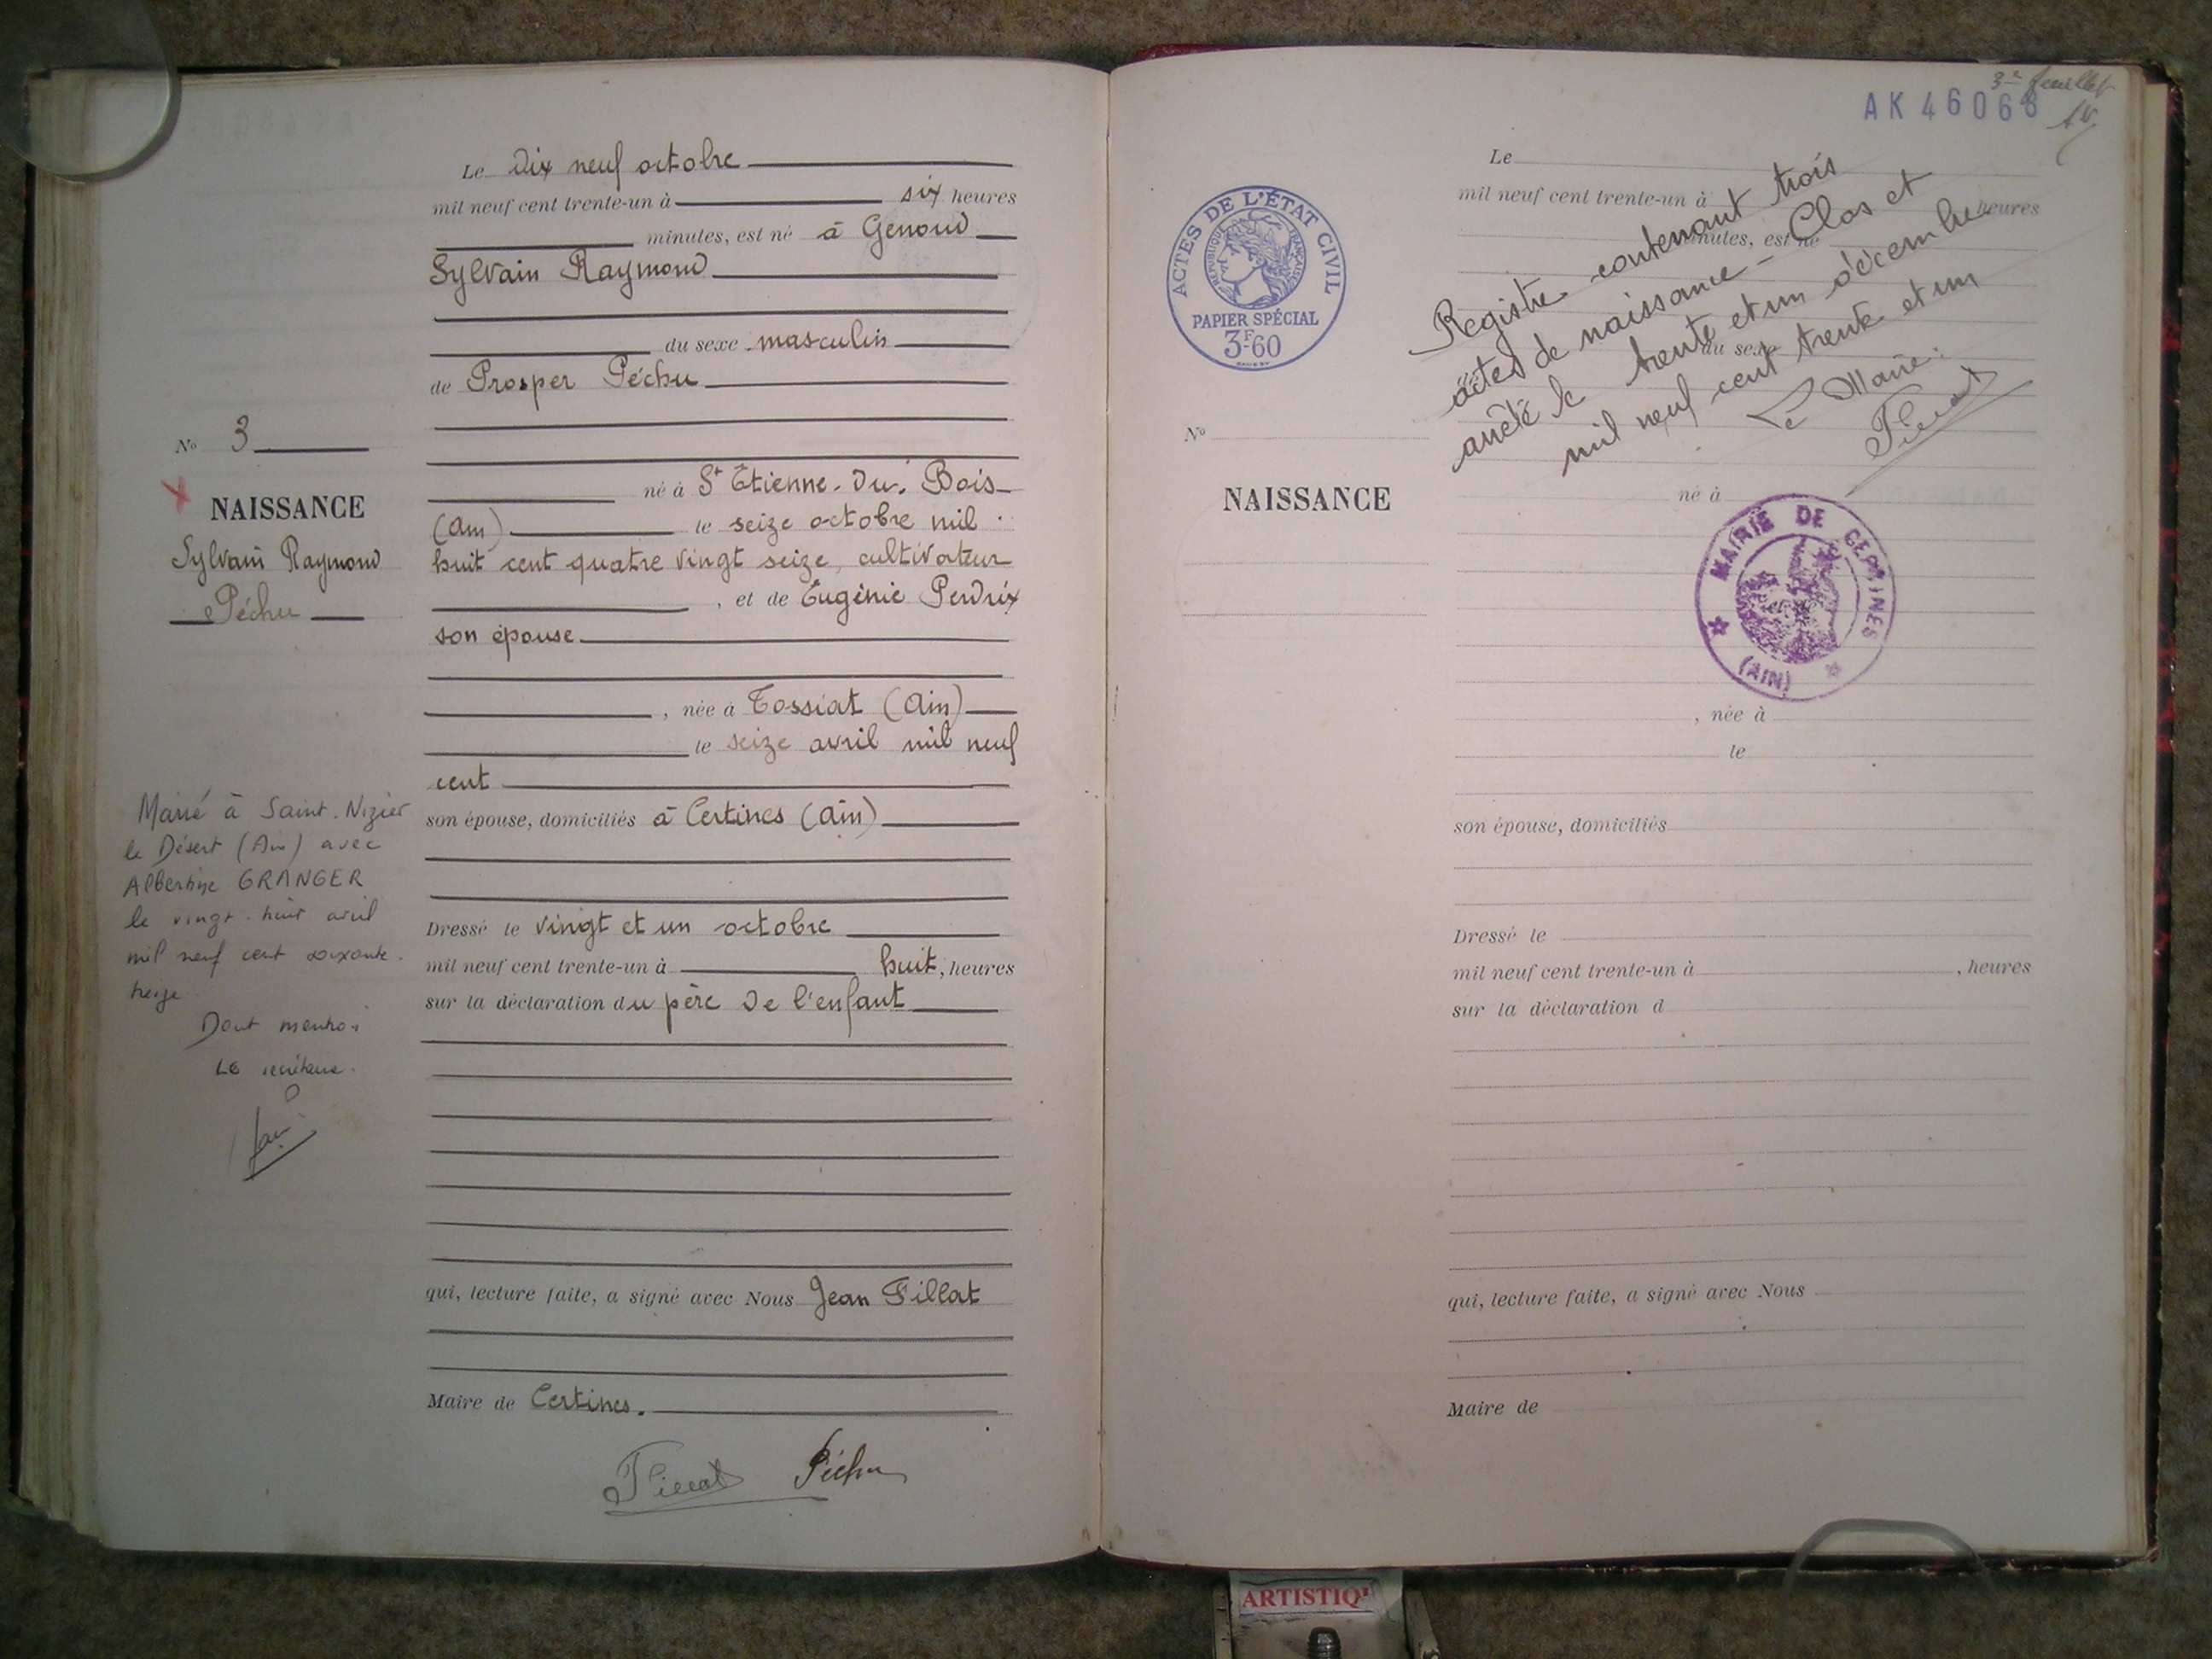 Le dix neuf octobre
mil neuf cent trente-un à six heures
minutes, est né à Genoud
Sylvain Raymond
du sexe masculin
de Prosper Péchu
No 3
né à St Étienne-du-Bois
NAISSANCE
(Ain) le seize octobre mil
Sylvain Raymond
huit cent quatre vingt seize, cultivateur
Péchu
, et de Eugénie Perdrix
son épouse
, née à Tossiat (Ain)
le seize avril mil neuf
cent
son épouse, domiciliés à Certines (Ain)
Marié à Saint-Nizier
le Désert (Ain) avec
Albertine GRANGER
le vingt-huit avril
mil neuf cent soixante-
treize
Dont mention
Le secrétaire.
Dressé le vingt et un octobre
mil neuf cent trente-un à huit, heures
sur la déclaration du père de l'enfant
qui, lecture faite, a signé avec Nous Jean Fillat
Maire de Certines.
Péchu
3e feuillet
AK 46068
ACTES DE L'ÉTAT CIVIL
RÉPUBLIQUE FRANÇAISE
PAPIER SPÉCIAL
3F60
Le
mil neuf cent trente-un à heures
minutes, est né
du sexe
de
Registre contenant trois
actes de naissance - Clos et
arrêté le trente et un décembre
mil neuf cent trente et un
Le Maire:
No
NAISSANCE
né à
MAIRIE DE CERTINES
(AIN)
, née à
le
son épouse, domiciliés
Dressé le
mil neuf cent trente-un à , heures
sur la déclaration d
qui, lecture faite, a signé avec Nous
Maire de
ARTISTIQ